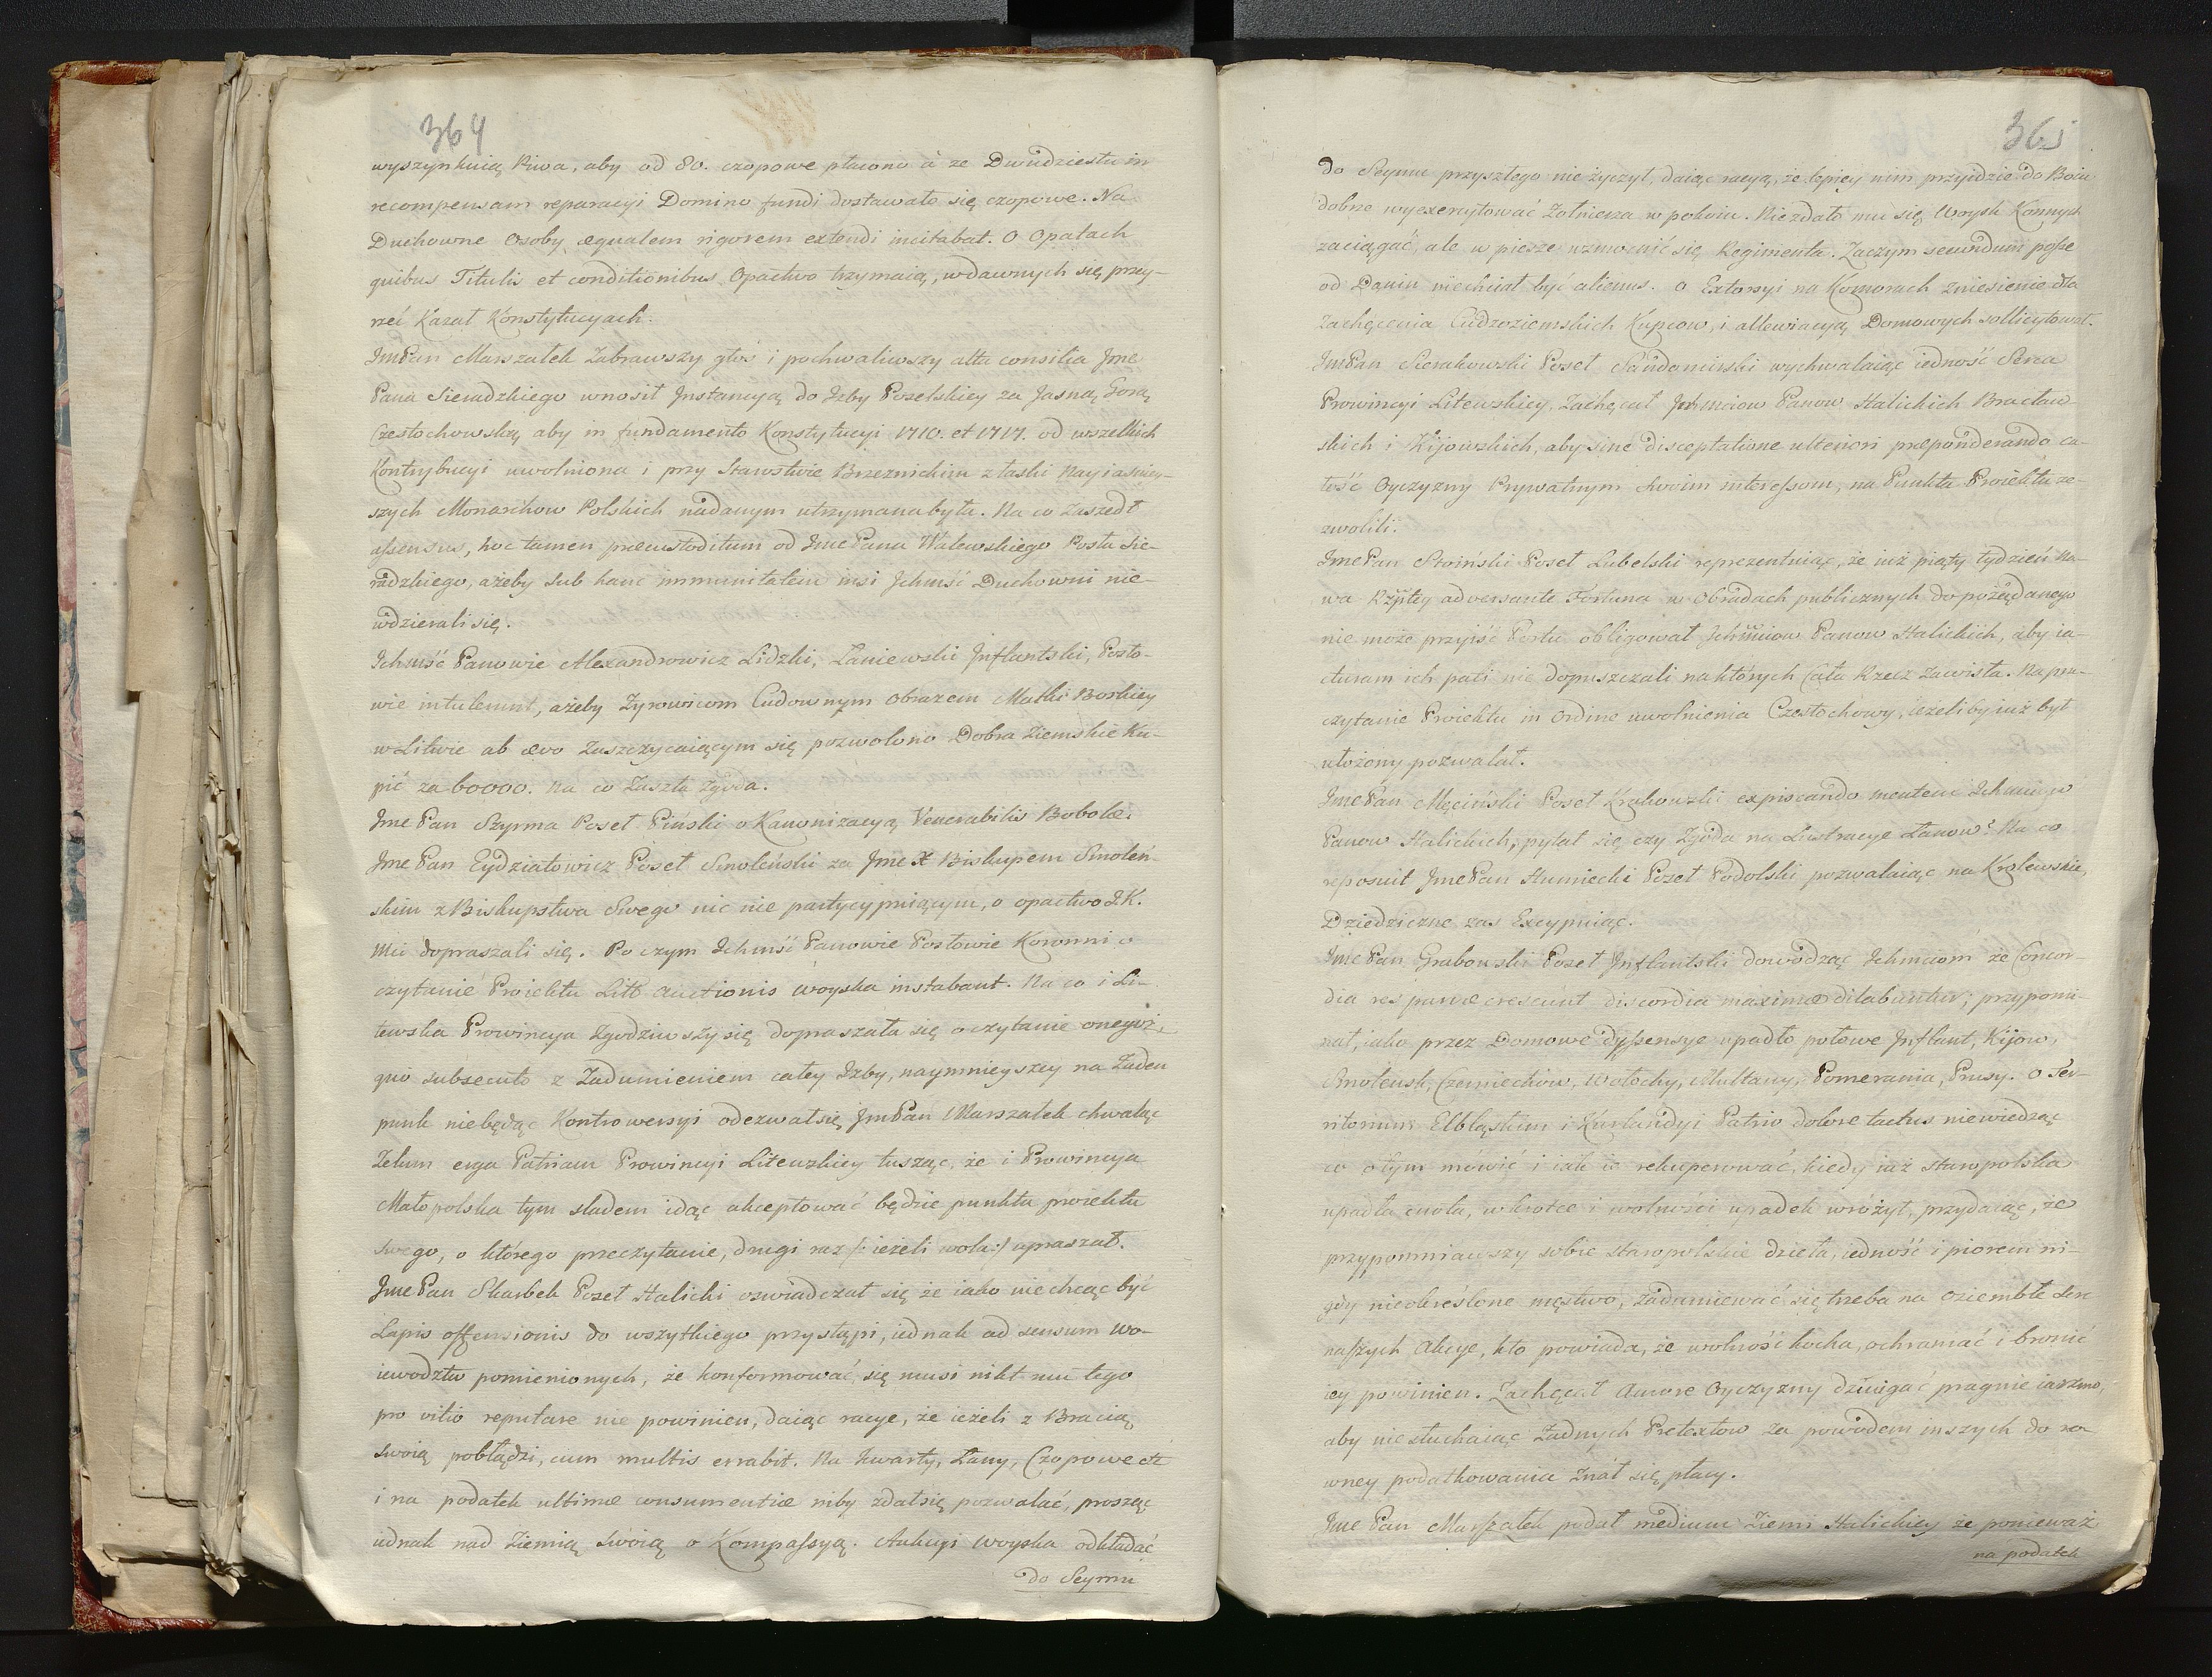 364
wyszynkuią Piwa, aby od 80. czopowe płacono à ze Dwudziestu in
recompensam reparacyi Domino fundi dostawało się czopowe. Na
Duchowne Osoby æqualem rigorem extendi incitabat. O Opatach
quibus Titulis et conditionibus Opactwo trzymaią, w dawnych się przey-
rzeć Kazał Konstytucyach.
JmPan Marszałek Zabrawszy głos i pochwaliwszy alta consilia Jme
Pana Sieradzkiego wnosił Jnstancyą do Jzby Poselskiey za Jasną Gorą
Częstochowską aby in fundamento Konstytucyi 1710. et 1717. od wszelkich
Kontrybucyi uwolniona i przy Starostwie Brzeznickim z łaski Nayiasniey-
szych Monarchow Polskich nadanym utrzymana była. Na co Zaszedł
assensus, hoc tamen præcustoditum od Jme Pana Walewskiego Posła Sie-
radzkiego, ażeby sub hanc immunitatem insi Jchmść Duchowni nie-
wdzierali się.
Jchmść Panowie Alexandrowicz Lidzki, Zaniewski Jnflantski, Posło-
wie intulerunt, ażeby Zyrowicom Cudownym Obrazem Matki Boskiey
w Litwie ab ævo Zaszczycaiącym się pozwolono Dobra Ziemskie Ku-
pić za 60000. na co Zaszła Zgoda.
Jme Pan Szyrma Poseł Piński o Kanonizacyą Venerabilis Bobolæ.
Jme Pan Eydziatowicz Poseł Smoleński za Jme X Biskupem Smoleń-
skim z Biskupstwa Swego nic nie partycypuiącym, o opactwo J.K.
Mci dopraszali się. Po czym Jchmść Panowie Posłowie Koronni o
czytanie Proiektu Litt auctionis woyska instabant. Na co i Li-
tewska Prowincya Zgodziwszy się dopraszała się o czytanie onegoż,
quo subsecuto z Zadumieniem całey Jzby, naymnieyszey na Zaden
punkt niebędąc Kontrowersyi odezwał się JmPan Marszałek chwaląc
Zelum erga Patriam Prowincyi Litewskiey tusząc, że i Prowincya
Małopolska tym sladem idąc akceptować będzie punkta proiektu
swego, o którego przeczytanie, drugi raz /: ieżeli wola :/ upraszał.
Jme Pan Skarbek Poseł Halicki oswiadczał się że iako nie chcąc być
Lapis offensionis do wszytkiego przystąpi, iednak ad sensum Wo-
iewodztw pomienionych, że konformować się musi nikt mu tego
pro vitio reputare nie powinien, daiąc racye, że ieżeli z Bracią
swoią pobłądzi, cum multis errabit. Na Kwarty, Łany, Czopowe etc
i na podatek ultimæ consumentiæ niby zdał się pozwalać, prosząc
iednak nad Ziemią swoią o Kompassyą. Aukcyi woyska odkładać
do Seymu
365
do Seymu przyszłego nie życzył, daiąc racyą, że lepiey nim przyidzie do Boiu
dobrze wyexercytować Zołnierza w pokoiu. Niezdało mu się Woysk Konnych
zaciągać, ale w piesze wzmocnić się Regimenta. Zaczym secundum posse
od Danin niechciał być alienus. o Extorsyi na Komorach zniesienie dla
Zachęcenia Cudzoziemskich Kupcow, i allewiacyą Domowych sollicytował.
JmPan Sierakowski Poseł Sandomirski wychwalaiąc iedność Serca
Prowincyi Litewskiey, Zachęcał Jchmciow Panow Halickich Bracław-
skich i Kijowskich, aby sine disceptatione ulteriori præponderando ca-
łość Oyczyzny Prywatnym swoim interessom, na Punkta Proiektu ze-
zwolili.
Jme Pan Stoiński Poseł Lubelski reprezentuiąc, że iuż piąty tydzień Na-
wa Rzptey adversante Fortuna w Obradach publicznych do pożądanego
nie może przyiść Portu obligował Jchmciow Panow Halickich, aby ia-
cturam ich pati nie dopuszczali na których Cała Rzecz Zawisła. Na prze-
czytanie Proiektu in ordine uwolnienia Częstochowy, ieżeliby iuż był
ułożony pozwalał.
Jme Pan Męciński Poseł Krakowski expiscando mentem Jchmciow
Panow Halickich, pytał się czy Zgoda na Lustracye Łanow? Na co
reposuit Jme Pan Humiecki Poseł Podolski pozwalaiąc na Krolewskie,
Dziedziczne zas Excypuiąc.
Jme Pan Grabowski Poseł Jnflantski dowodząc Jchmciom że Concor-
dia res parvæ crescunt discordia maximæ dilabuntur; przypomi-
nał, iako przez Domowe dyssensye upadło połowę Jnflant, Kijow,
Smolensk, Czerniechow, Wołochy, Multany, Pomerania, Prusy. O Ter-
ritorium Elbląskim i Kurlandyi Patrio dolore tactus niewiedząc
co o tym mówić i iak ie rekuperować, kiedy iuż staropolska
upadła cnota, wkrotce i wolności upadek wróżył, przydaiąc, że
przypomniawszy sobie staropolskie dzieła, iedność i piorem ni-
gdy nieokreślone męstwo, zadumiewać się trzeba na oziembłe Serc
naszych Akcye, kto powiada, że wolność kocha, ochraniać i bronić
iey powinien. Zachęcał Amore Oyczyzny dźwigać pragnie iarzmo,
aby nie słuchaiąc Zadnych Pretextow za powodem inszych do ro-
wney podatkowania znał się płacy.
Jme Pan Marszałek podał medium Ziemi Halickiey że ponieważ
na podatek